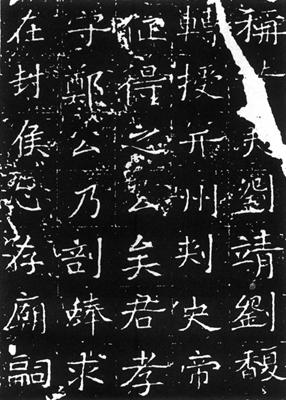 稱劉靖劉馥
轉授并州刾史帝
征得之矣君孝
子鄭公乃剖蜯求
在封侯存廟嗣